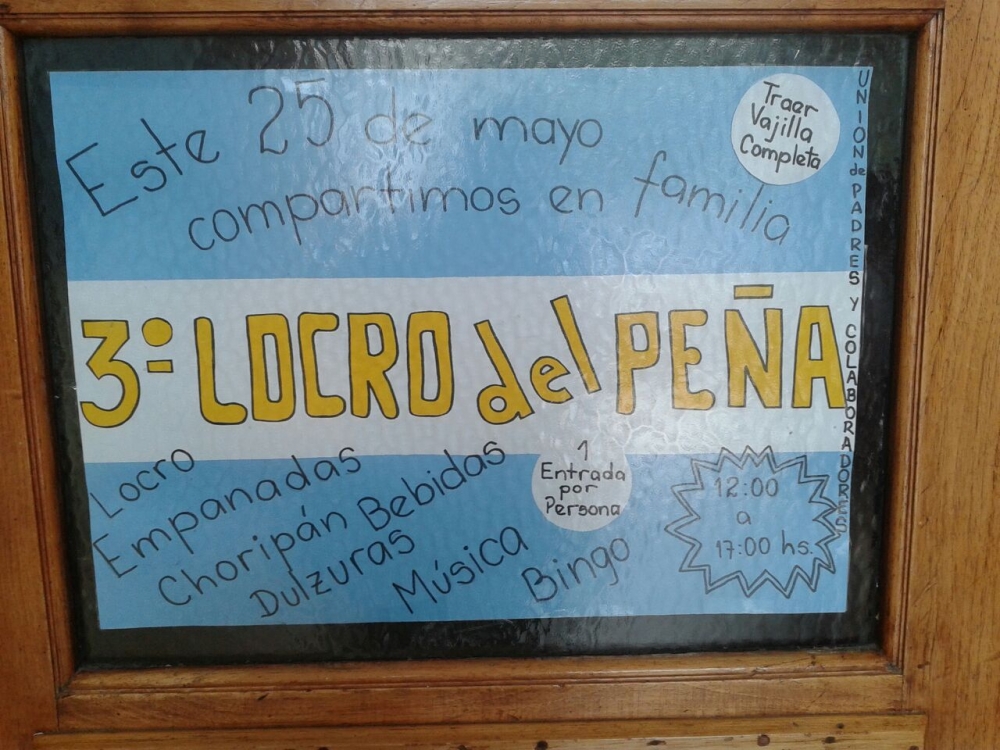 Este 25 de mayo
compartimos en familia
Traer
Vajilla
Completa
UNION de PADRES y COLABORADORES
3º LOCRO del PEÑA
Locro
Empanadas
Choripán Bebidas
Dulzuras
Música
Bingo
1
Entrada
por
Persona
12:00
a
17:00 hs.